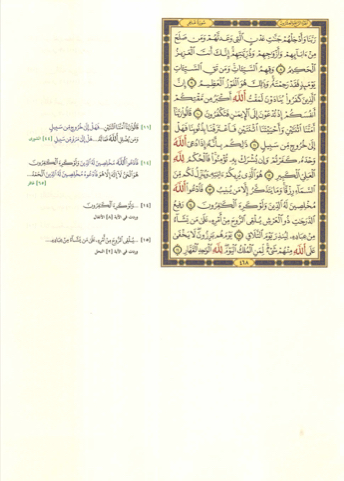 سورة غافر
رَبَّنَا وَأَدْخِلْهُمْ جَنَّٰتِ عَدْنٍ ٱلَّتِى وَعَدتَّهُمْ وَمَن صَلَحَ
مِنْ ءَابَآئِهِمْ وَأَزْوَٰجِهِمْ وَذُرِّيَّٰتِهِمْ إِنَّكَ أَنتَ ٱلْعَزِيزُ
ٱلْحَكِيمُ ٨ وَقِهِمُ ٱلسَّيِّـَٔاتِ وَمَن تَقِ ٱلسَّيِّـَٔاتِ
يَوْمَئِذٍ فَقَدْ رَحِمْتَهُۥ وَذَٰلِكَ هُوَ ٱلْفَوْزُ ٱلْعَظِيمُ ٩ إِنَّ
ٱلَّذِينَ كَفَرُوا۟ يُنَادَوْنَ لَمَقْتُ ٱللَّهِ أَكْبَرُ مِن مَّقْتِكُمْ
أَنفُسَكُمْ إِذْ تُدْعَوْنَ إِلَى ٱلْإِيمَٰنِ فَتَكْفُرُونَ ١٠ قَالُوا۟ رَبَّنَآ
أَمَتَّنَا ٱثْنَتَيْنِ وَأَحْيَيْتَنَا ٱثْنَتَيْنِ فَٱعْتَرَفْنَا بِذُنُوبِنَا فَهَلْ
إِلَىٰ خُرُوجٍ مِّن سَبِيلٍ ١١ ذَٰلِكُم بِأَنَّهُۥٓ إِذَا دُعِىَ ٱللَّهُ
وَحْدَهُۥ كَفَرْتُمْ وَإِن يُشْرَكْ بِهِۦ تُؤْمِنُوا۟ فَٱلْحُكْمُ لِلَّهِ
ٱلْعَلِىِّ ٱلْكَبِيرِ ١٢ هُوَ ٱلَّذِى يُرِيكُمْ ءَايَٰتِهِۦ وَيُنَزِّلُ لَكُم مِّنَ
ٱلسَّمَآءِ رِزْقًا وَمَا يَتَذَكَّرُ إِلَّا مَن يُنِيبُ ١٣ فَٱدْعُوا۟ ٱللَّهَ
مُخْلِصِينَ لَهُ ٱلدِّينَ وَلَوْ كَرِهَ ٱلْكَٰفِرُونَ ١٤ رَفِيعُ
ٱلدَّرَجَٰتِ ذُو ٱلْعَرْشِ يُلْقِى ٱلرُّوحَ مِنْ أَمْرِهِۦ عَلَىٰ مَن يَشَآءُ
مِنْ عِبَادِهِۦ لِيُنذِرَ يَوْمَ ٱلتَّلَاقِ ١٥ يَوْمَ هُم بَٰرِزُونَ لَا يَخْفَىٰ
عَلَى ٱللَّهِ مِنْهُمْ شَىْءٌ لِّمَنِ ٱلْمُلْكُ ٱلْيَوْمَ لِلَّهِ ٱلْوَٰحِدِ ٱلْقَهَّارِ ١٦
٤٦٨
[١١] قَالُوا۟ رَبَّنَآ أَمَتَّنَا ٱثْنَتَيْنِ ... فَهَلْ إِلَىٰ خُرُوجٍ مِّن سَبِيلٍ
وَمَن يُضْلِلِ ٱللَّهُ فَمَا لَهُ ... هَلْ إِلَىٰ مَرَدٍّ مِّن سَبِيلٍ [٤٤] الشورى
[١٤] فَٱدْعُوا۟ ٱللَّهَ مُخْلِصِينَ لَهُ ٱلدِّينَ وَلَوْ كَرِهَ ٱلْكَٰفِرُونَ
هُوَ ٱلْحَىُّ لَآ إِلَٰهَ إِلَّا هُوَ فَٱدْعُوهُ مُخْلِصِينَ لَهُ ٱلدِّينَ ٱلْحَمْدُ ...
[٦٥] غافر
[١٤] ... وَلَوْ كَرِهَ ٱلْكَٰفِرُونَ
وردت في الآية [٨] الأنفال
[١٥] ... يُلْقِى ٱلرُّوحَ مِنْ أَمْرِهِۦ عَلَىٰ مَن يَشَآءُ مِنْ عِبَادِهِۦ ...
وردت في الآية [٢] النحل